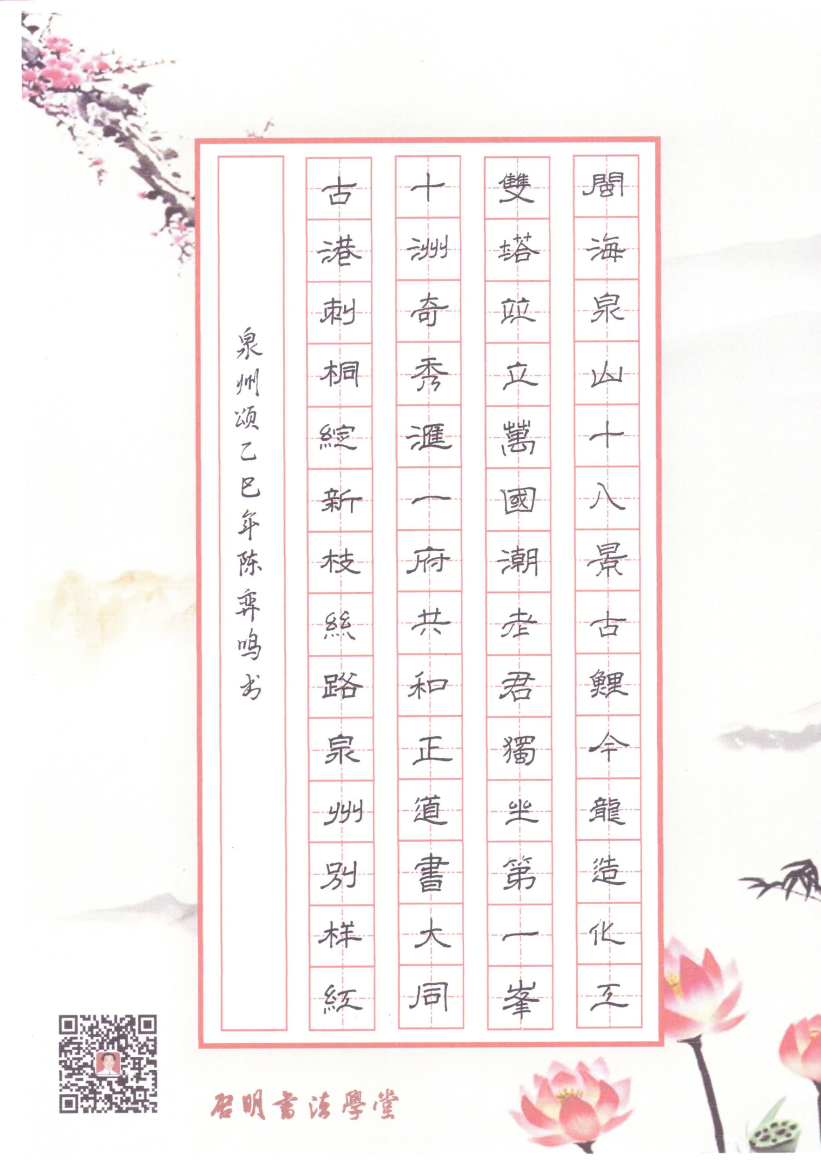 閩海泉山十八景古鯉今龍造化工
雙塔竝立萬國潮老君獨坐第一峯
十洲奇秀滙一府共和正道書大同
古港刺桐綻新枝絲路泉州別樣紅
泉州頌乙巳年陈弈鸣书
启明書法學堂